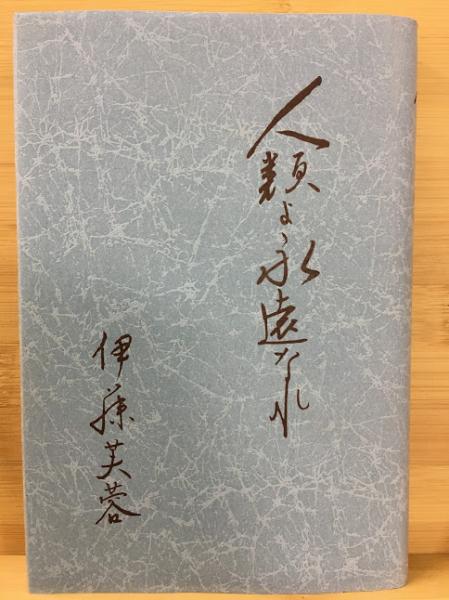 人類よ、永遠なれ
伊藤芙蓉